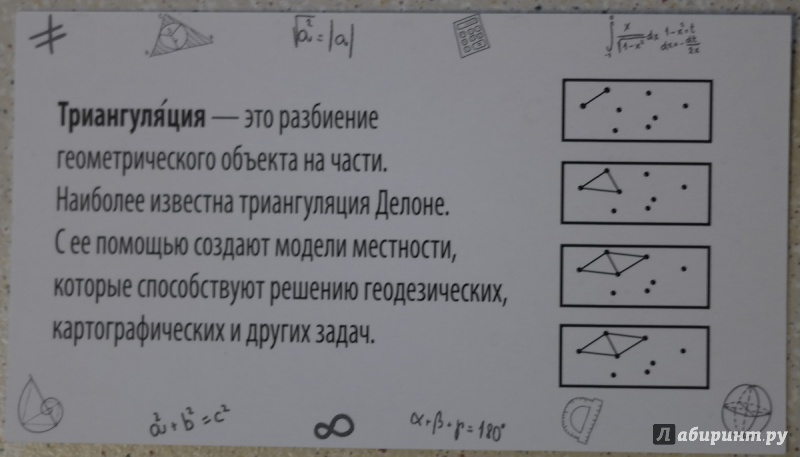 √a² = |a|
∫ x/√1-x² dx 1-x²=t
dx=-dt/2x
Триангуля́ция — это разбиение
геометрического объекта на части.
Наиболее известна триангуляция Делоне.
С ее помощью создают модели местности,
которые способствуют решению геодезических,
картографических и других задач.
a²+b²=c²
∞
α+β+γ=180°
Лабиринт.ру